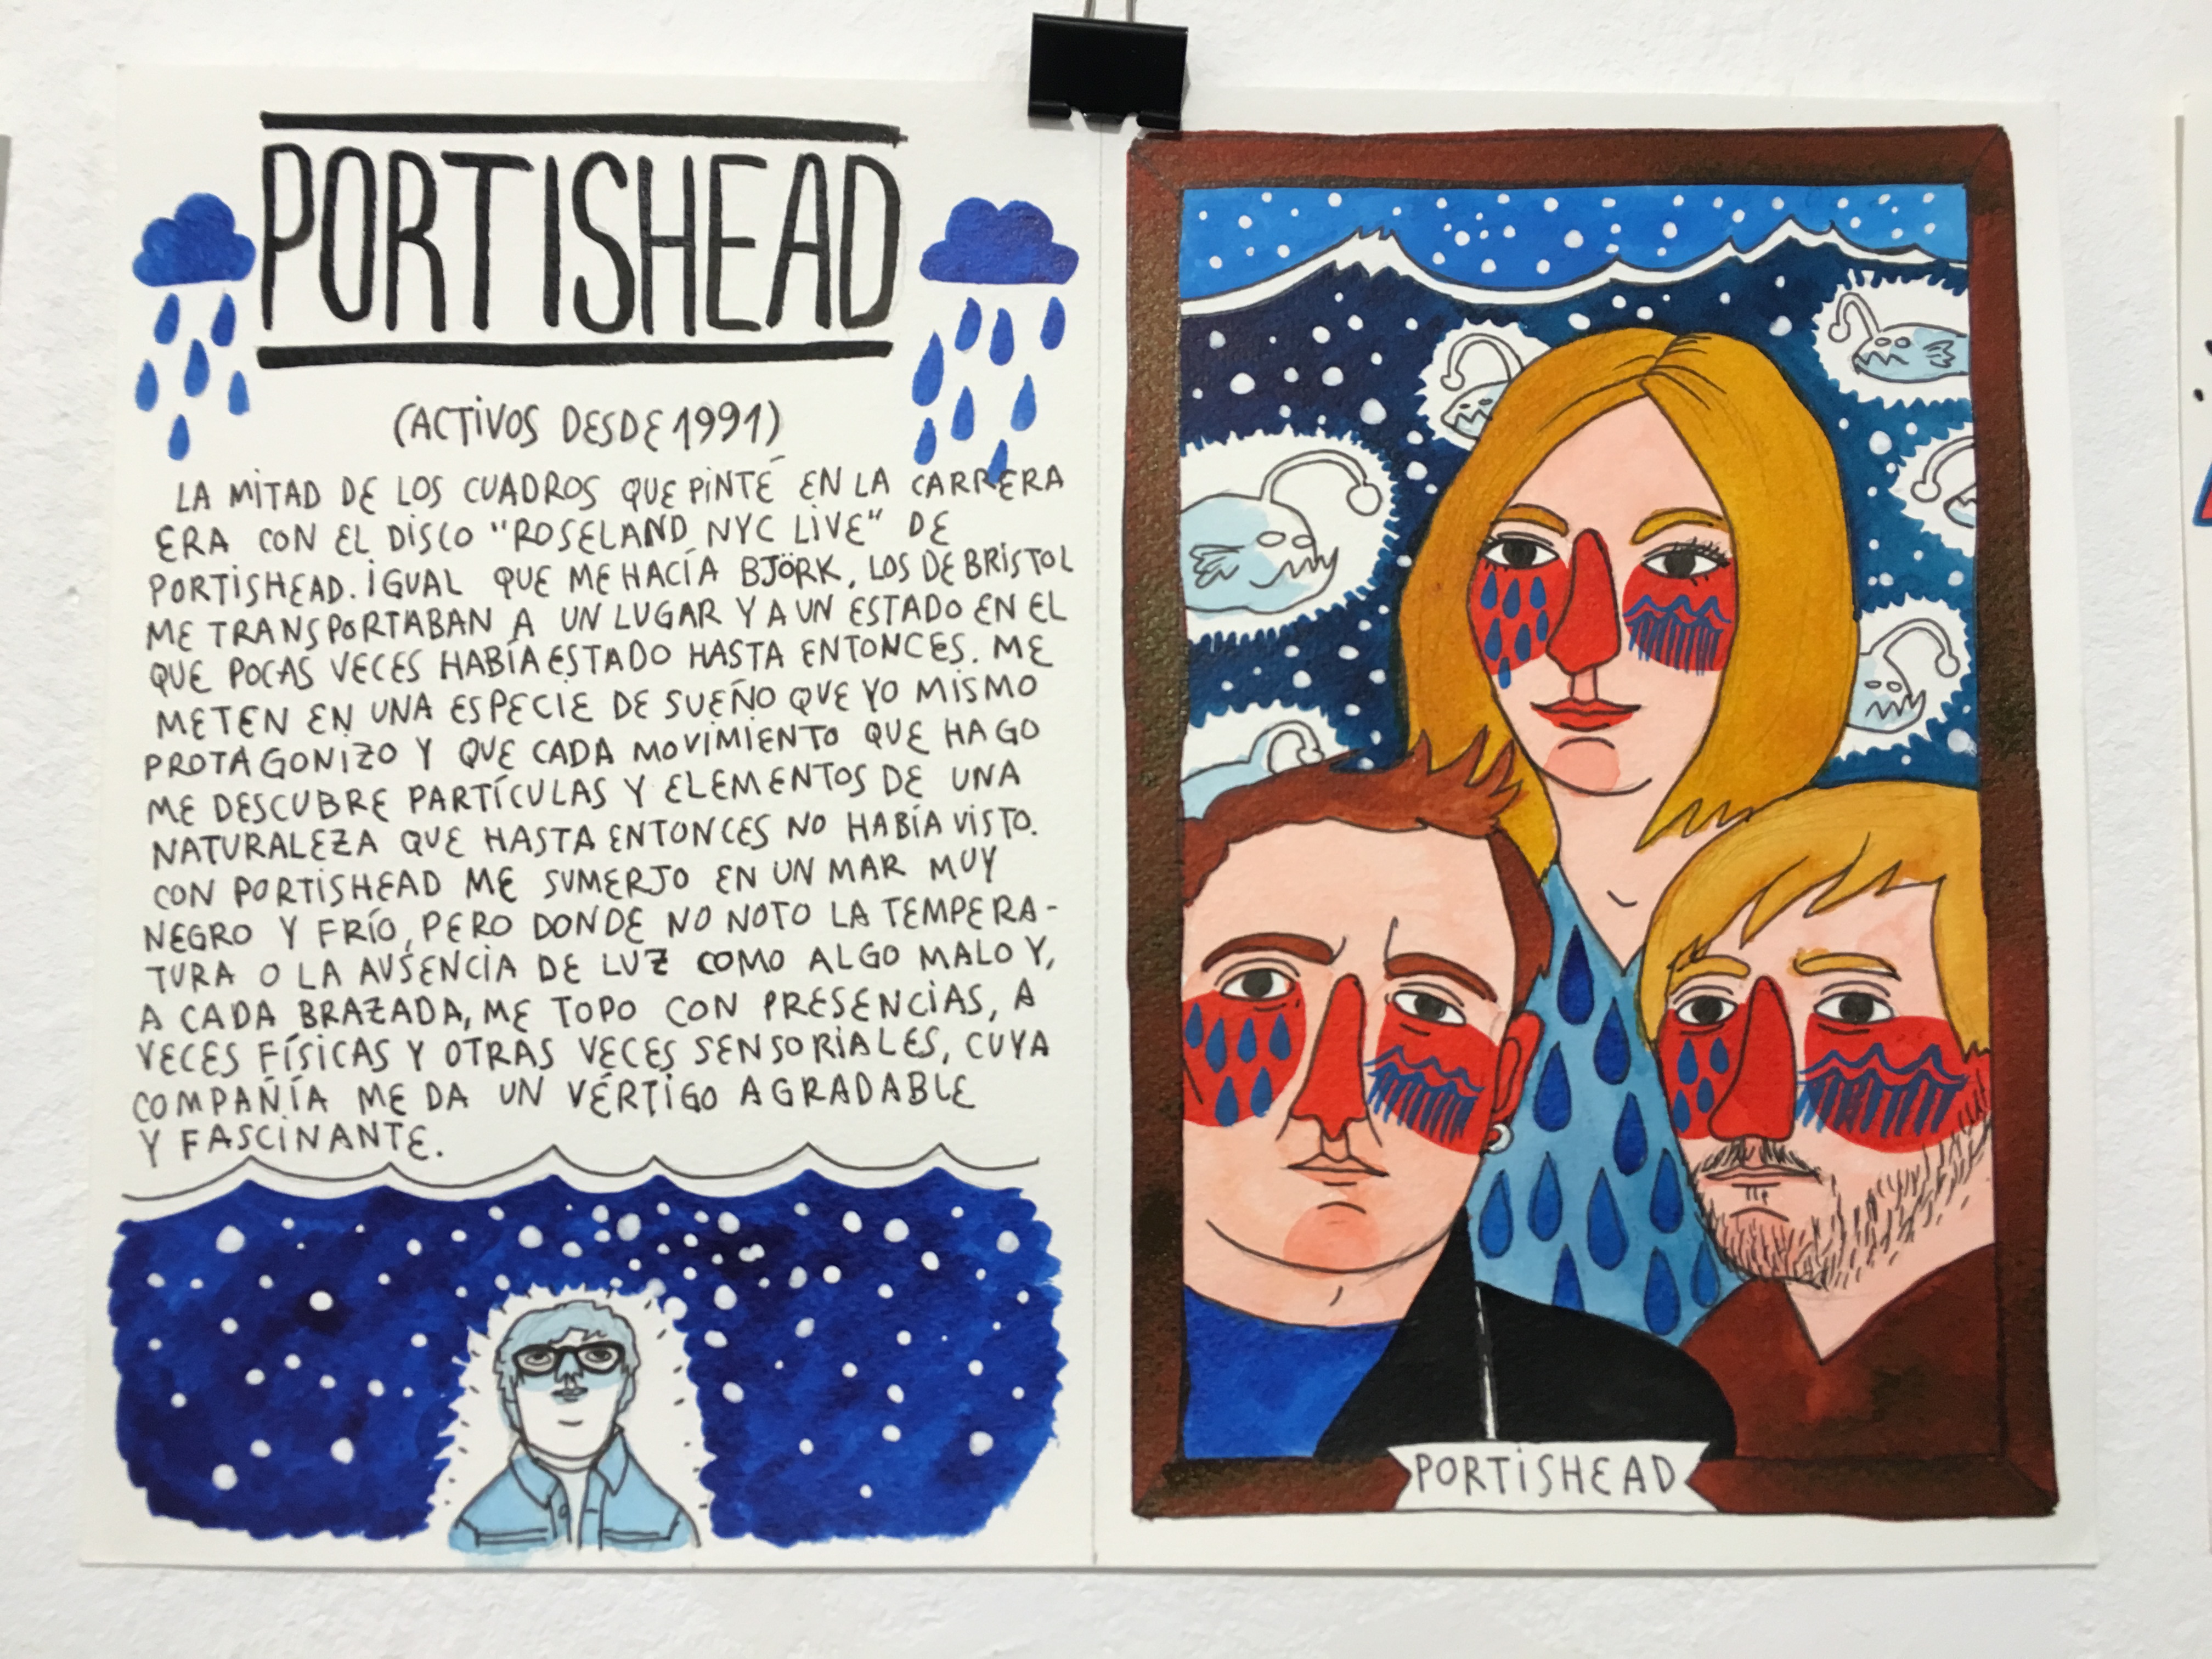 PORTISHEAD
(ACTIVOS DESDE 1991)
LA MITAD DE LOS CUADROS QUE PINTÉ EN LA CARRERA
ERA CON EL DISCO "ROSELAND NYC LIVE" DE
PORTISHEAD. IGUAL QUE ME HACÍA BJÖRK, LOS DE BRISTOL
ME TRANSPORTABAN A UN LUGAR Y A UN ESTADO EN EL
QUE POCAS VECES HABÍA ESTADO HASTA ENTONCES. ME
METEN EN UNA ESPECIE DE SUEÑO QUE YO MISMO
PROTAGONIZO Y QUE CADA MOVIMIENTO QUE HAGO
ME DESCUBRE PARTÍCULAS Y ELEMENTOS DE UNA
NATURALEZA QUE HASTA ENTONCES NO HABÍA VISTO.
CON PORTISHEAD ME SUMERJO EN UN MAR MUY
NEGRO Y FRÍO, PERO DONDE NO NOTO LA TEMPERA-
TURA O LA AUSENCIA DE LUZ COMO ALGO MALO Y,
A CADA BRAZADA, ME TOPO CON PRESENCIAS, A
VECES FÍSICAS Y OTRAS VECES SENSORIALES, CUYA
COMPAÑÍA ME DA UN VÉRTIGO AGRADABLE
Y FASCINANTE.
PORTISHEAD